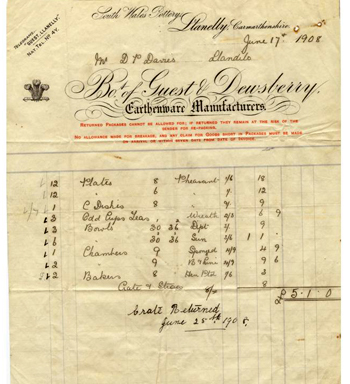 South Wales Pottery,
Llanelly, Carmarthenshire.
TELEGRAMS, "GUEST, LLANELLY"
NAT. TEL. Nº 47.
June 17th 1908
Mr D P Davies, Llandilo
Bo. of Guest & Dewsberry.
Earthenware Manufacturers.
RETURNED PACKAGES CANNOT BE ALLOWED FOR, IF RETURNED THEY REMAIN AT THE RISK OF THE
SENDER FOR RE-PACKING.
NO ALLOWANCE MADE FOR BREAKAGE, AND ANY CLAIM FOR GOODS SHORT IN PACKAGES MUST BE MADE
ON ARRIVAL OR WITHIN SEVEN DAYS FROM DATE OF INVOICE.
12 Plates 8 Pheasant 1/6 18
12 " 6 "
1 C Dishes 8 " 9
3 Odd Cups Teas Wreath 6 9
3 Bowls 30 36 Dipt 9
6 " 30 36 1 1
1 Chambers 9 Sponged 4 9
2 " 9 9 6
2 Bakers 8
Crate & Straw 8
£5-1-0
Crate Returned
June 25th 190